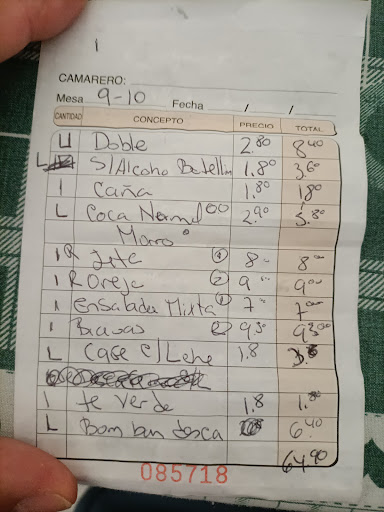 1
CAMARERO:
Mesa 9-10 Fecha / /
CANTIDAD CONCEPTO PRECIO TOTAL
Doble 2.80 8.40
L S/Alcoho Botellin 1.80 3.60
1 Caña 1.80 1.80
L Coca Normal 00 2.90 5.80
Morro
1R Jeta 4 8 8
1R Oreja 2 9 9.00
1 ensalada Mixta 1 7 7
1 Bravas 9.30 9.30
L Cafe c/ Leche 1.8
1 te verde 1.8 1.80
L 6.40
64.90
085718